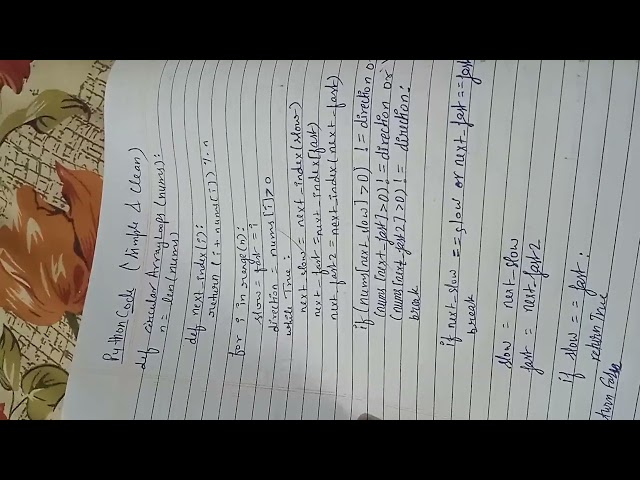 Python Code (Simple & Clean)
def circular Array Loops (nums):
n = len(nums)
def next_index(i):
return (i + nums[i]) % n
for i in range(n):
slow = fast = i
direction = nums[i]>0
while True:
next_slow = next_index(slow)
next_fast = next_index[fast)
next_fast2 = next_index(next-fast)
if (nums[next_slow]>0) != direction o
(nums[next_fast]>0)!= direction or
(nums[next_fast2]>0)!= direction:
break
if next_slow == slow or next_fast == fast
break
slow = next_slow
fast = next_fast2
if slow == fast.
return True
turn False